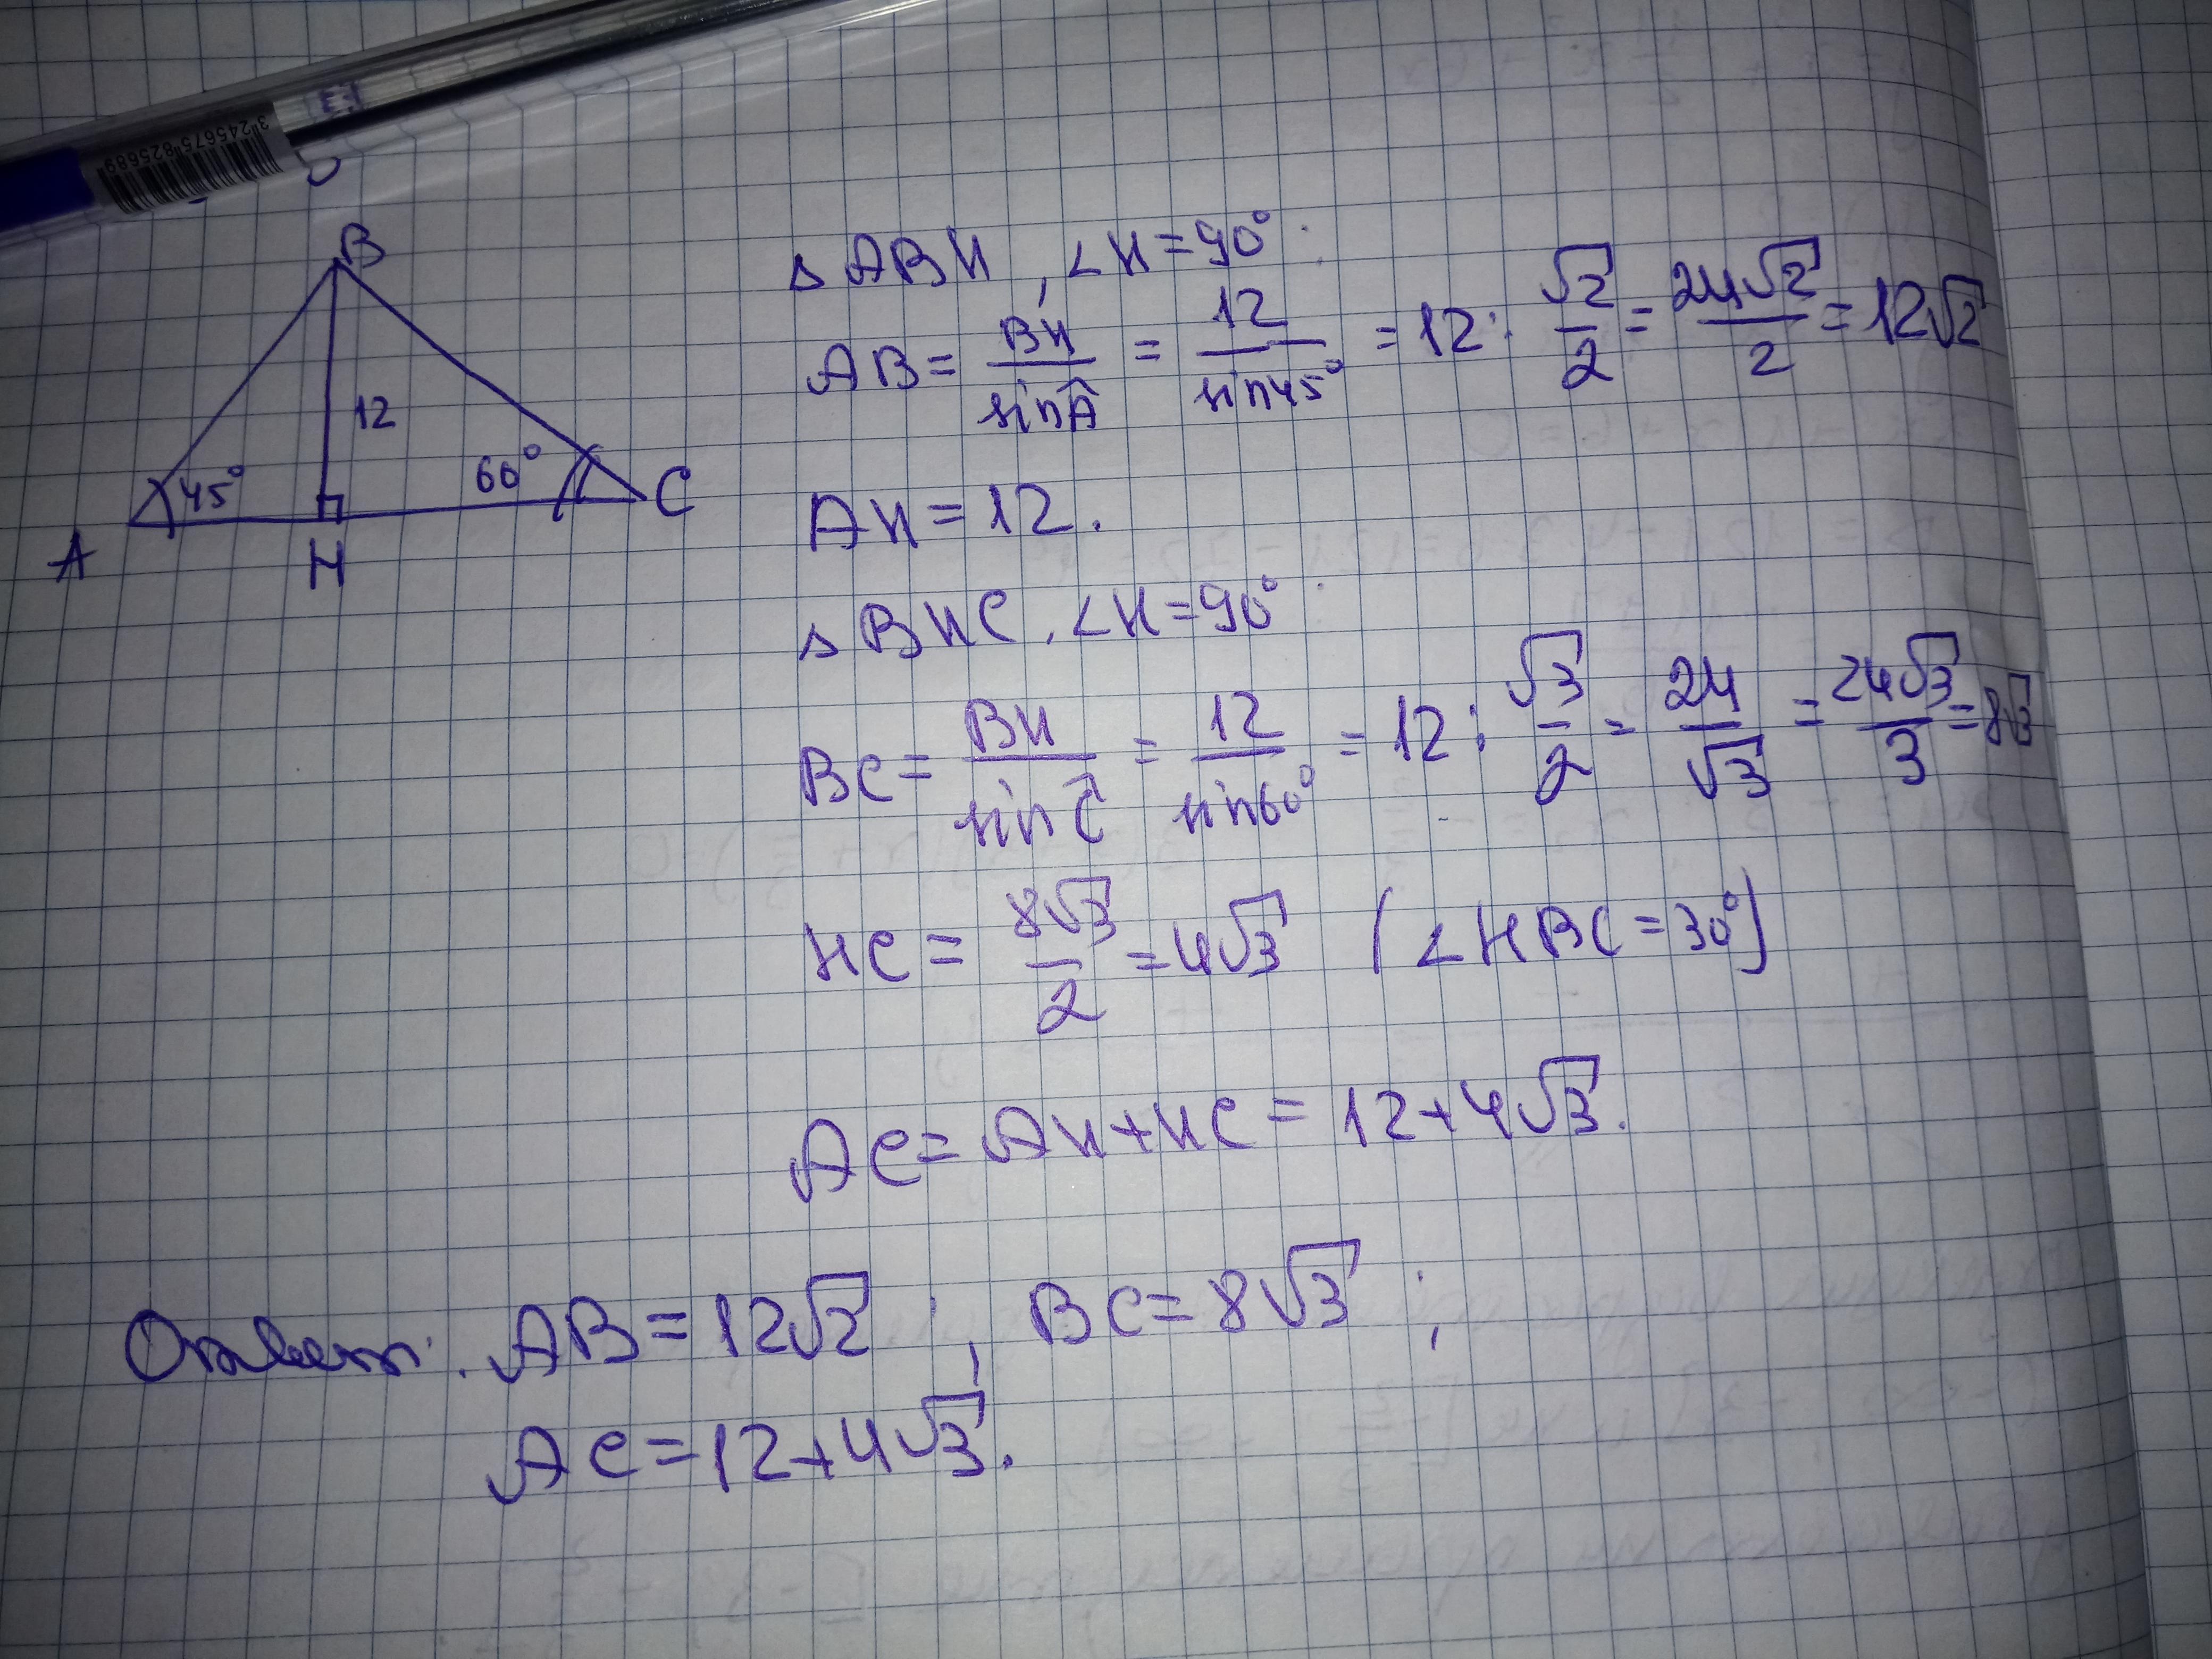 3"245675"825689
B
12
45°
60°
A
H
C
△ ABH, ∠H = 90°:
AB = BH/sinÂ = 12/sin45° = 12 : √2/2 = 24√2/2 = 12√2
AH = 12.
△ BHC, ∠H = 90°:
BC = BH/sinĈ = 12/sin60° = 12 : √3/2 = 24/√3 = 24√3/3 = 8√3
HC = 8√3/2 = 4√3 (∠HBC = 30°)
AC = AH + HC = 12 + 4√3.
Ответ: AB = 12√2 ; BC = 8√3 ;
AC = 12 + 4√3.